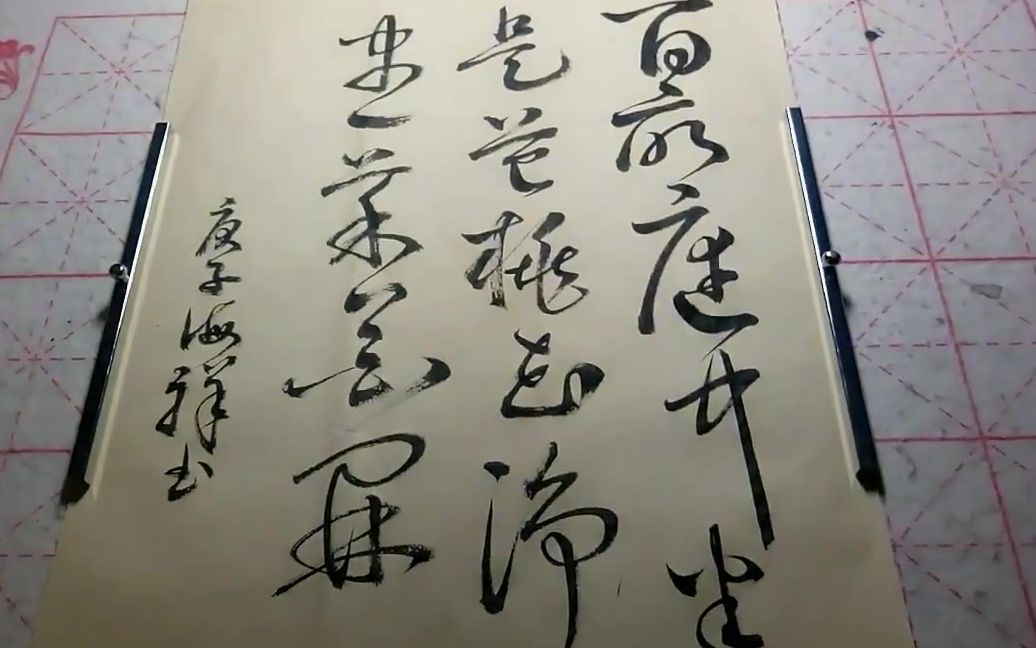 百亩庭中半
是苔桃花净
尽菜花开
庚子海祥书